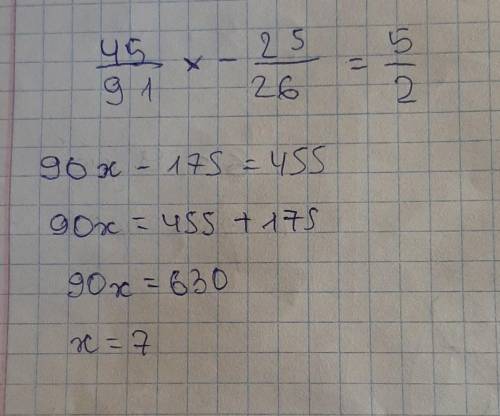 45/91 x - 25/26 = 5/2
90x - 175 = 455
90x = 455 + 175
90x = 630
x = 7